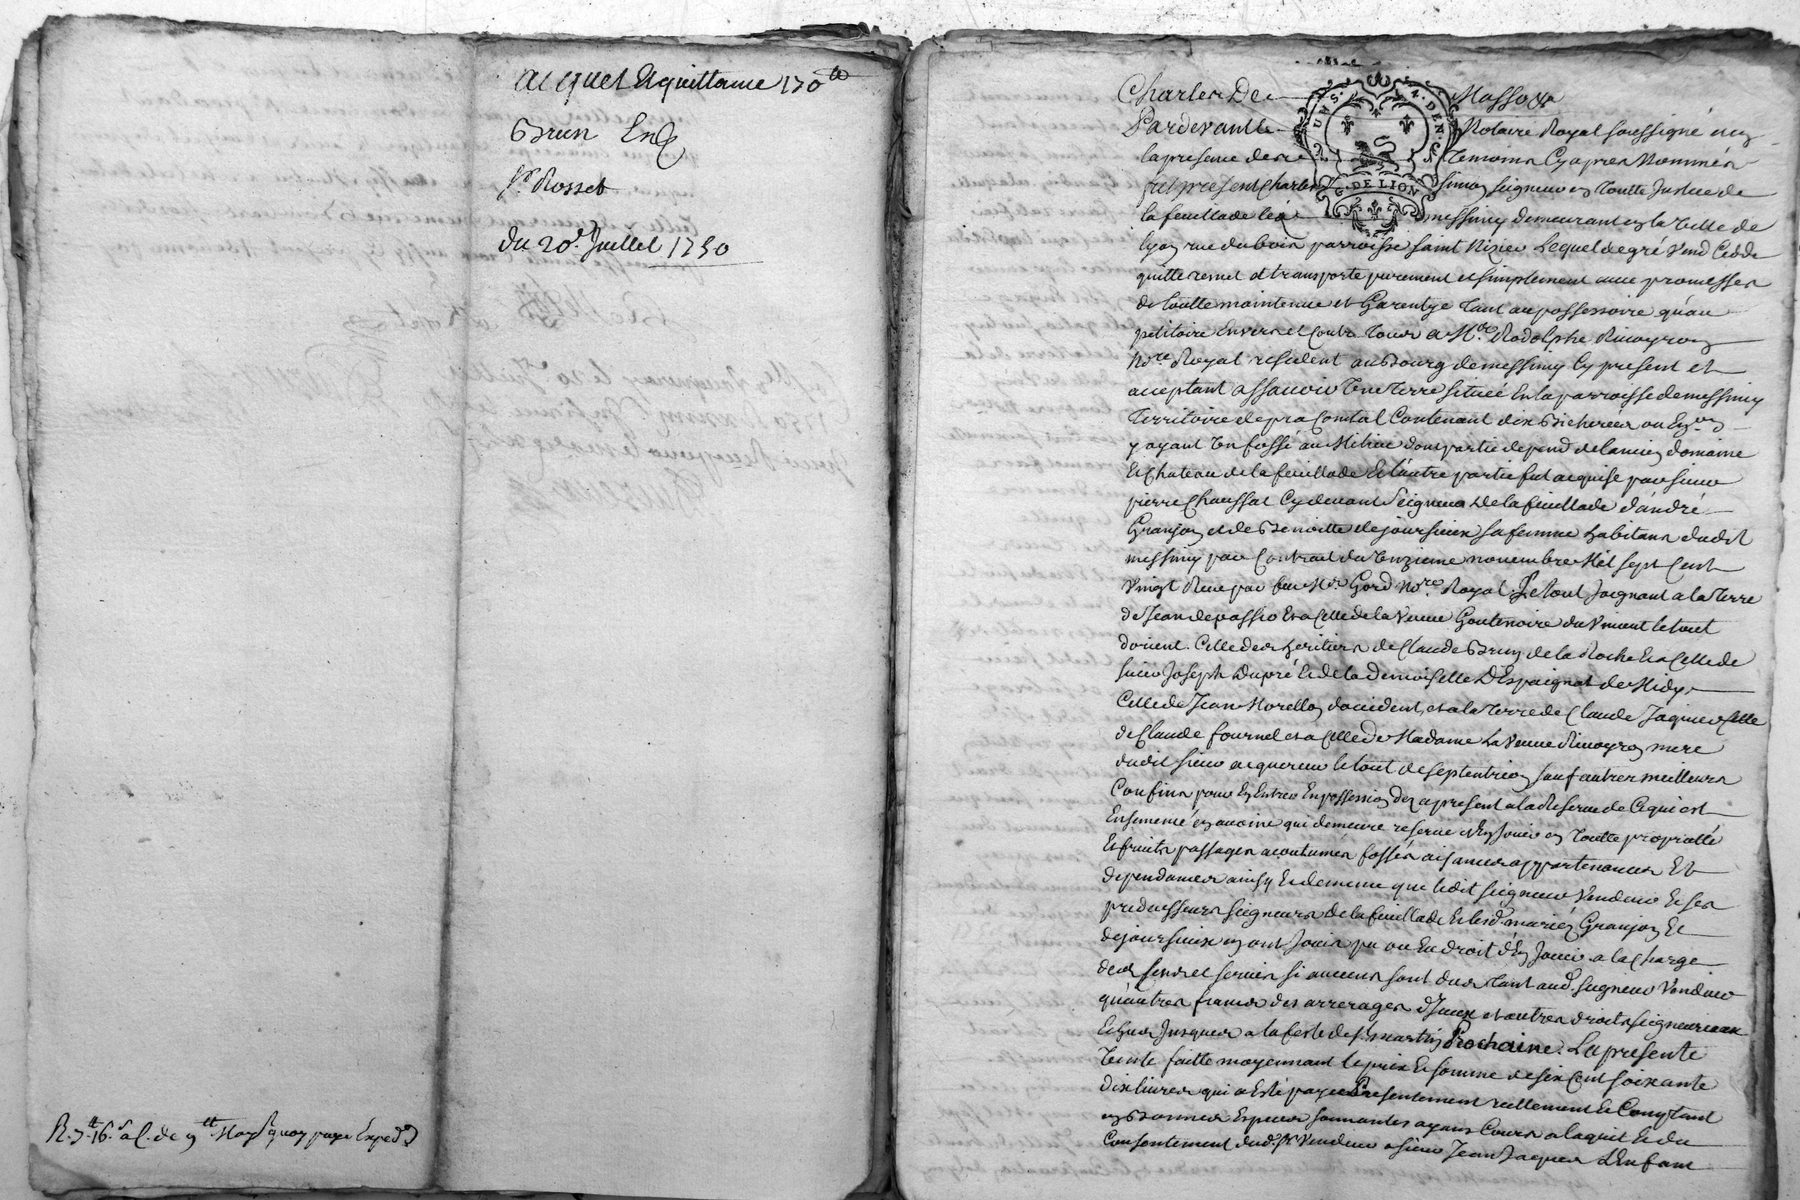 acquet Et quittance 170ᵗᵗ
Brun Ent
Sʳ Rosset
du 20ᵉ Juillet 1750
R. 7ᵗᵗ 16ˢ a C. de 9ᵗᵗ Moyˢ quoy paye Exped
Charles De Massos
2 SOLS 4 DEN
G. DE LION
Pardevant le Notaire Royal soussigné en
la presence des Temoins Cy apres Nommés
fut present Charles simon seigneur en toutte Justice de
la feuillade les messimy demeurant en la Ville de
Lyon rue dubois parroisse saint Nizier Lequel de gré Vend Cedde
quitte remet et transporte purement et simplement avec promesses
de toutte maintenue et Garentye tant au possessoire qu'au
petitoire Envers et Contre tous a Mᵉ Rodolphe Rivoyron
Noʳᵉ Royal resident au Bourg de messimy Cy present et
acceptant assavoir Une Terre située En la parroisse de messimy
Territoire de pra Comtal Contenant dix Bicherées ou Enᵒⁿ
y ayant Un fossé au Milieu dont partie depend de lancien domaine
Et Chateau de la feuillade Et l'autre partie fut acquise par sieur
pierre Chaussat Cy devant Seigneur De la feuillade d'andré
Granjon et de Benoitte dejoursieux sa femme habitans dudit
messimy par Contrait du Unzieme novembre Mil sept Cent
Vingt Neuf par feu Mᵉ Gord Noʳᵉ Royal, Le tout Joignant a la Terre
de Jean depassio Et a Celle de la Veuve Goutenoire du Vivant le tout
dorient. Celle des heritiers de Claude Brun de la Roche Et a Celle de
sieur Joseph Dupré Et de la Demoiselle D'Espaignat de Midy
Celle de Jean Morellon doccident, et a la Terre de Claude Jaquier Celle
de Claude fournel et a Celle de Madame La Veuve Rivoyron mere
dudit sieur acquereur le tout de septentrion sauf autres meilleurs
Confins pour En Entrer En possession dez a present a la Reserve de Ce qui est
Ensemencé en avoine qui demeure reservé En Jouir en toutte proprietté
Et fruits passages acoutumés fossés aisances appartenances Et
dependances ainsy Et de meme que ledit seigneur Vendeur Et ses
predecesseurs seigneurs De la feuillade Et lesd. mariez Granjon Et
dejoursieux en ont Joui pu ou Eu droit d'En Jouir a la Charge
des sens et servis si aucuns sont dus tant aud. seigneur Vendeur
qu'autres francs des arrerages d'Iceux et autres droits seigneuriaux
Echus Jusques a la feste de sᵗ martin Prochaine. La presente
Vente faitte moyennant le prix Et somme de six Cent soixante
dix livres qui a Esté payee Presentement reellement Et Comptant
en Bonnes Especes sonnantes ayant Cours a laquit Et du
Consentement dud. sʳ Vendeur a sieur Jean Jaques L'Enfant